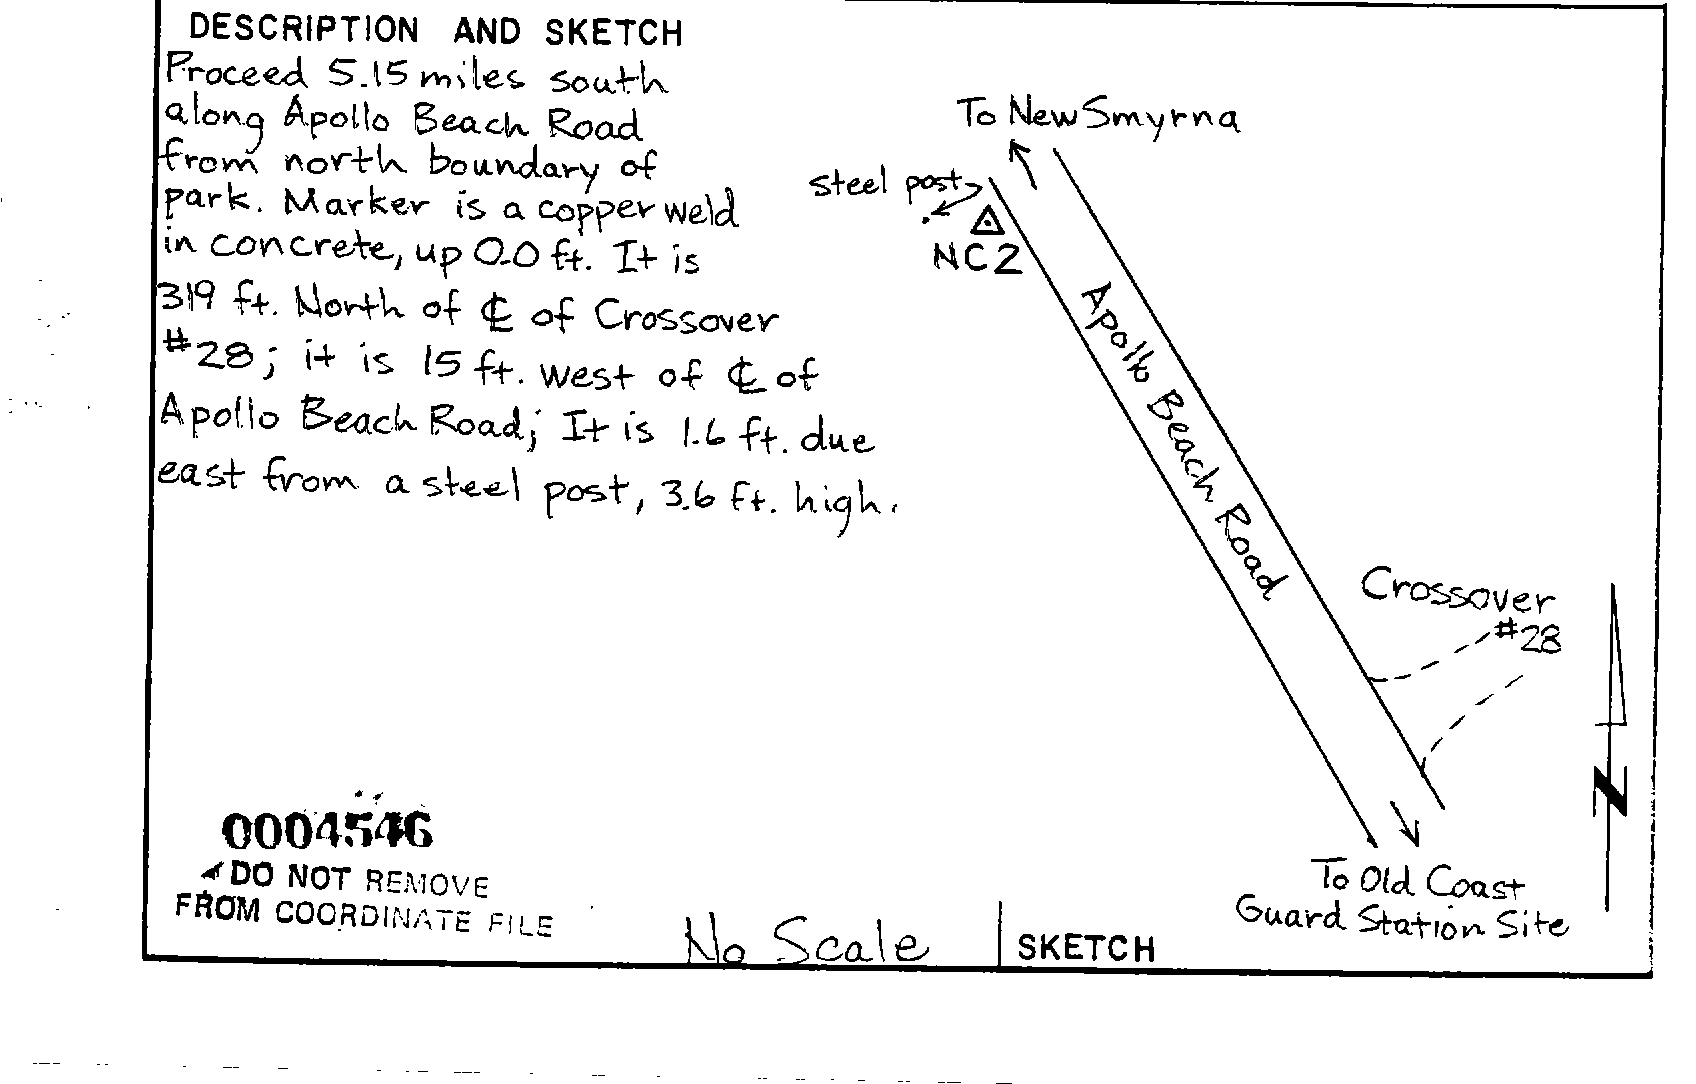 DESCRIPTION AND SKETCH
Proceed 5.15 miles south
along Apollo Beach Road
from north boundary of
park. Marker is a copper weld
in concrete, up 0.0 ft. It is
319 ft. North of ℄ of Crossover
#28; it is 15 ft. west of ℄ of
Apollo Beach Road; It is 1.6 ft. due
east from a steel post, 3.6 ft. high.
To New Smyrna
steel post
NC2
Apollo Beach Road
Crossover
#28
N
To Old Coast
Guard Station Site
0004546
DO NOT REMOVE
FROM COORDINATE FILE
No Scale
SKETCH